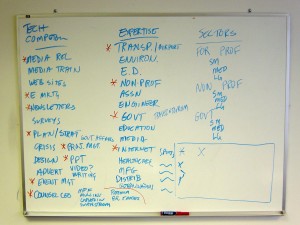 TECH
EXPERTISE
SECTORS
* MEDIA REL
MEDIA TRAIN
WEB SITES
* E MKTG
* NEWSLETTERS
SURVEYS
* PLAN/STRAT
CRISIS
* ORG. MGT.
DESIGN
* PPT
ADVERT
VIDEO?
WRITING
* EVENT MGT
* COUNSEL CEO
* TRANSP./
ENVIRON.
E.D.
* NON PROF
ASSN
ENGINEER
* GOVT
EDUCATION
MEDIA
* INTERNET
HEALTHCARE
MFG
DISTRIB
FOR PROF
SM
MED
LG
NON PROF
SM
MED
LG
GOVT
SM
MED
LG
X